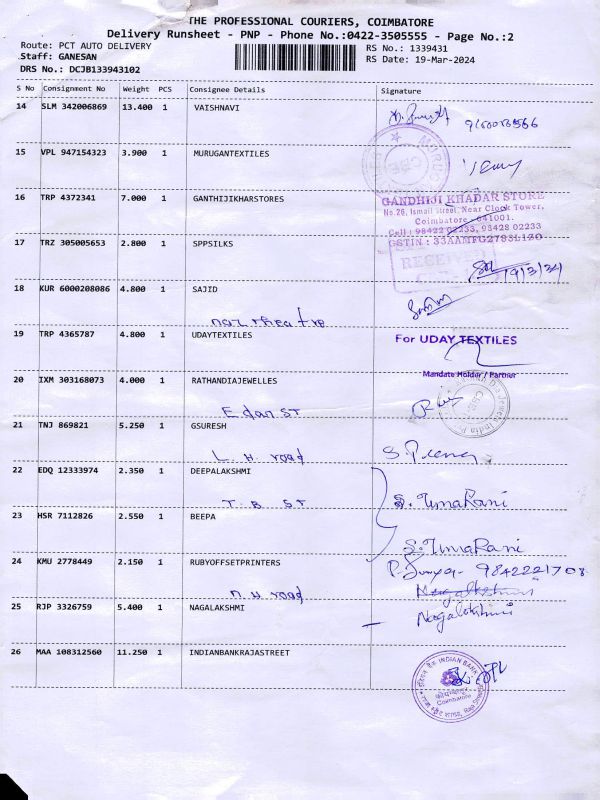 THE PROFESSIONAL COURIERS, COIMBATORE
Delivery Runsheet - PNP - Phone No.:0422-3505555 - Page No.:2
Route: PCT AUTO DELIVERY
RS No.: 1339431
Staff: GANESAN
RS Date: 19-Mar-2024
DRS No.: DCJB133943102
S No Consignment No Weight PCS Consignee Details Signature
14 SLM 342006869 13.400 1 VAISHNAVI
15 VPL 947154323 3.900 1 MURUGANTEXTILES
16 TRP 4372341 7.000 1 GANTHIJIKHARSTORES
GANDHIJI KHADAR STORE
No.26, Ismail street, Near Clock Tower,
Coimbatore - 641001.
Cell : 98422 02233, 98428 02233
17 TRZ 305005653 2.800 1 SPPSILKS
RECEIVED
19/3/24
18 KUR 6000208086 4.800 1 SAJID
19 TRP 4365787 4.800 1 UDAYTEXTILES
For UDAY TEXTILES
Mandate Holder / Partner
20 IXM 303168073 4.000 1 RATHANDIAJEWELLES
21 TNJ 869821 5.250 1 GSURESH
L. H. road
22 EDQ 12333974 2.350 1 DEEPALAKSHMI
S. UmaRani
T. B. ST
23 HSR 7112826 2.550 1 BEEPA
S. UmaRani
24 KMU 2778449 2.150 1 RUBYOFFSETPRINTERS
9842221708
25 RJP 3326759 5.400 1 NAGALAKSHMI
Nagalakshmi
26 MAA 108312560 11.250 1 INDIANBANKRAJASTREET
INDIAN BANK
Coimbatore